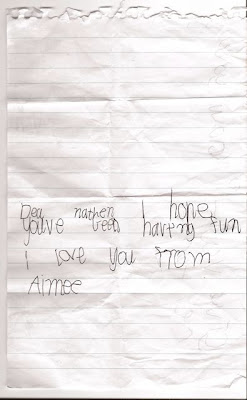 Dea nathen I hope
you've been having fun
i love you from
Aimee